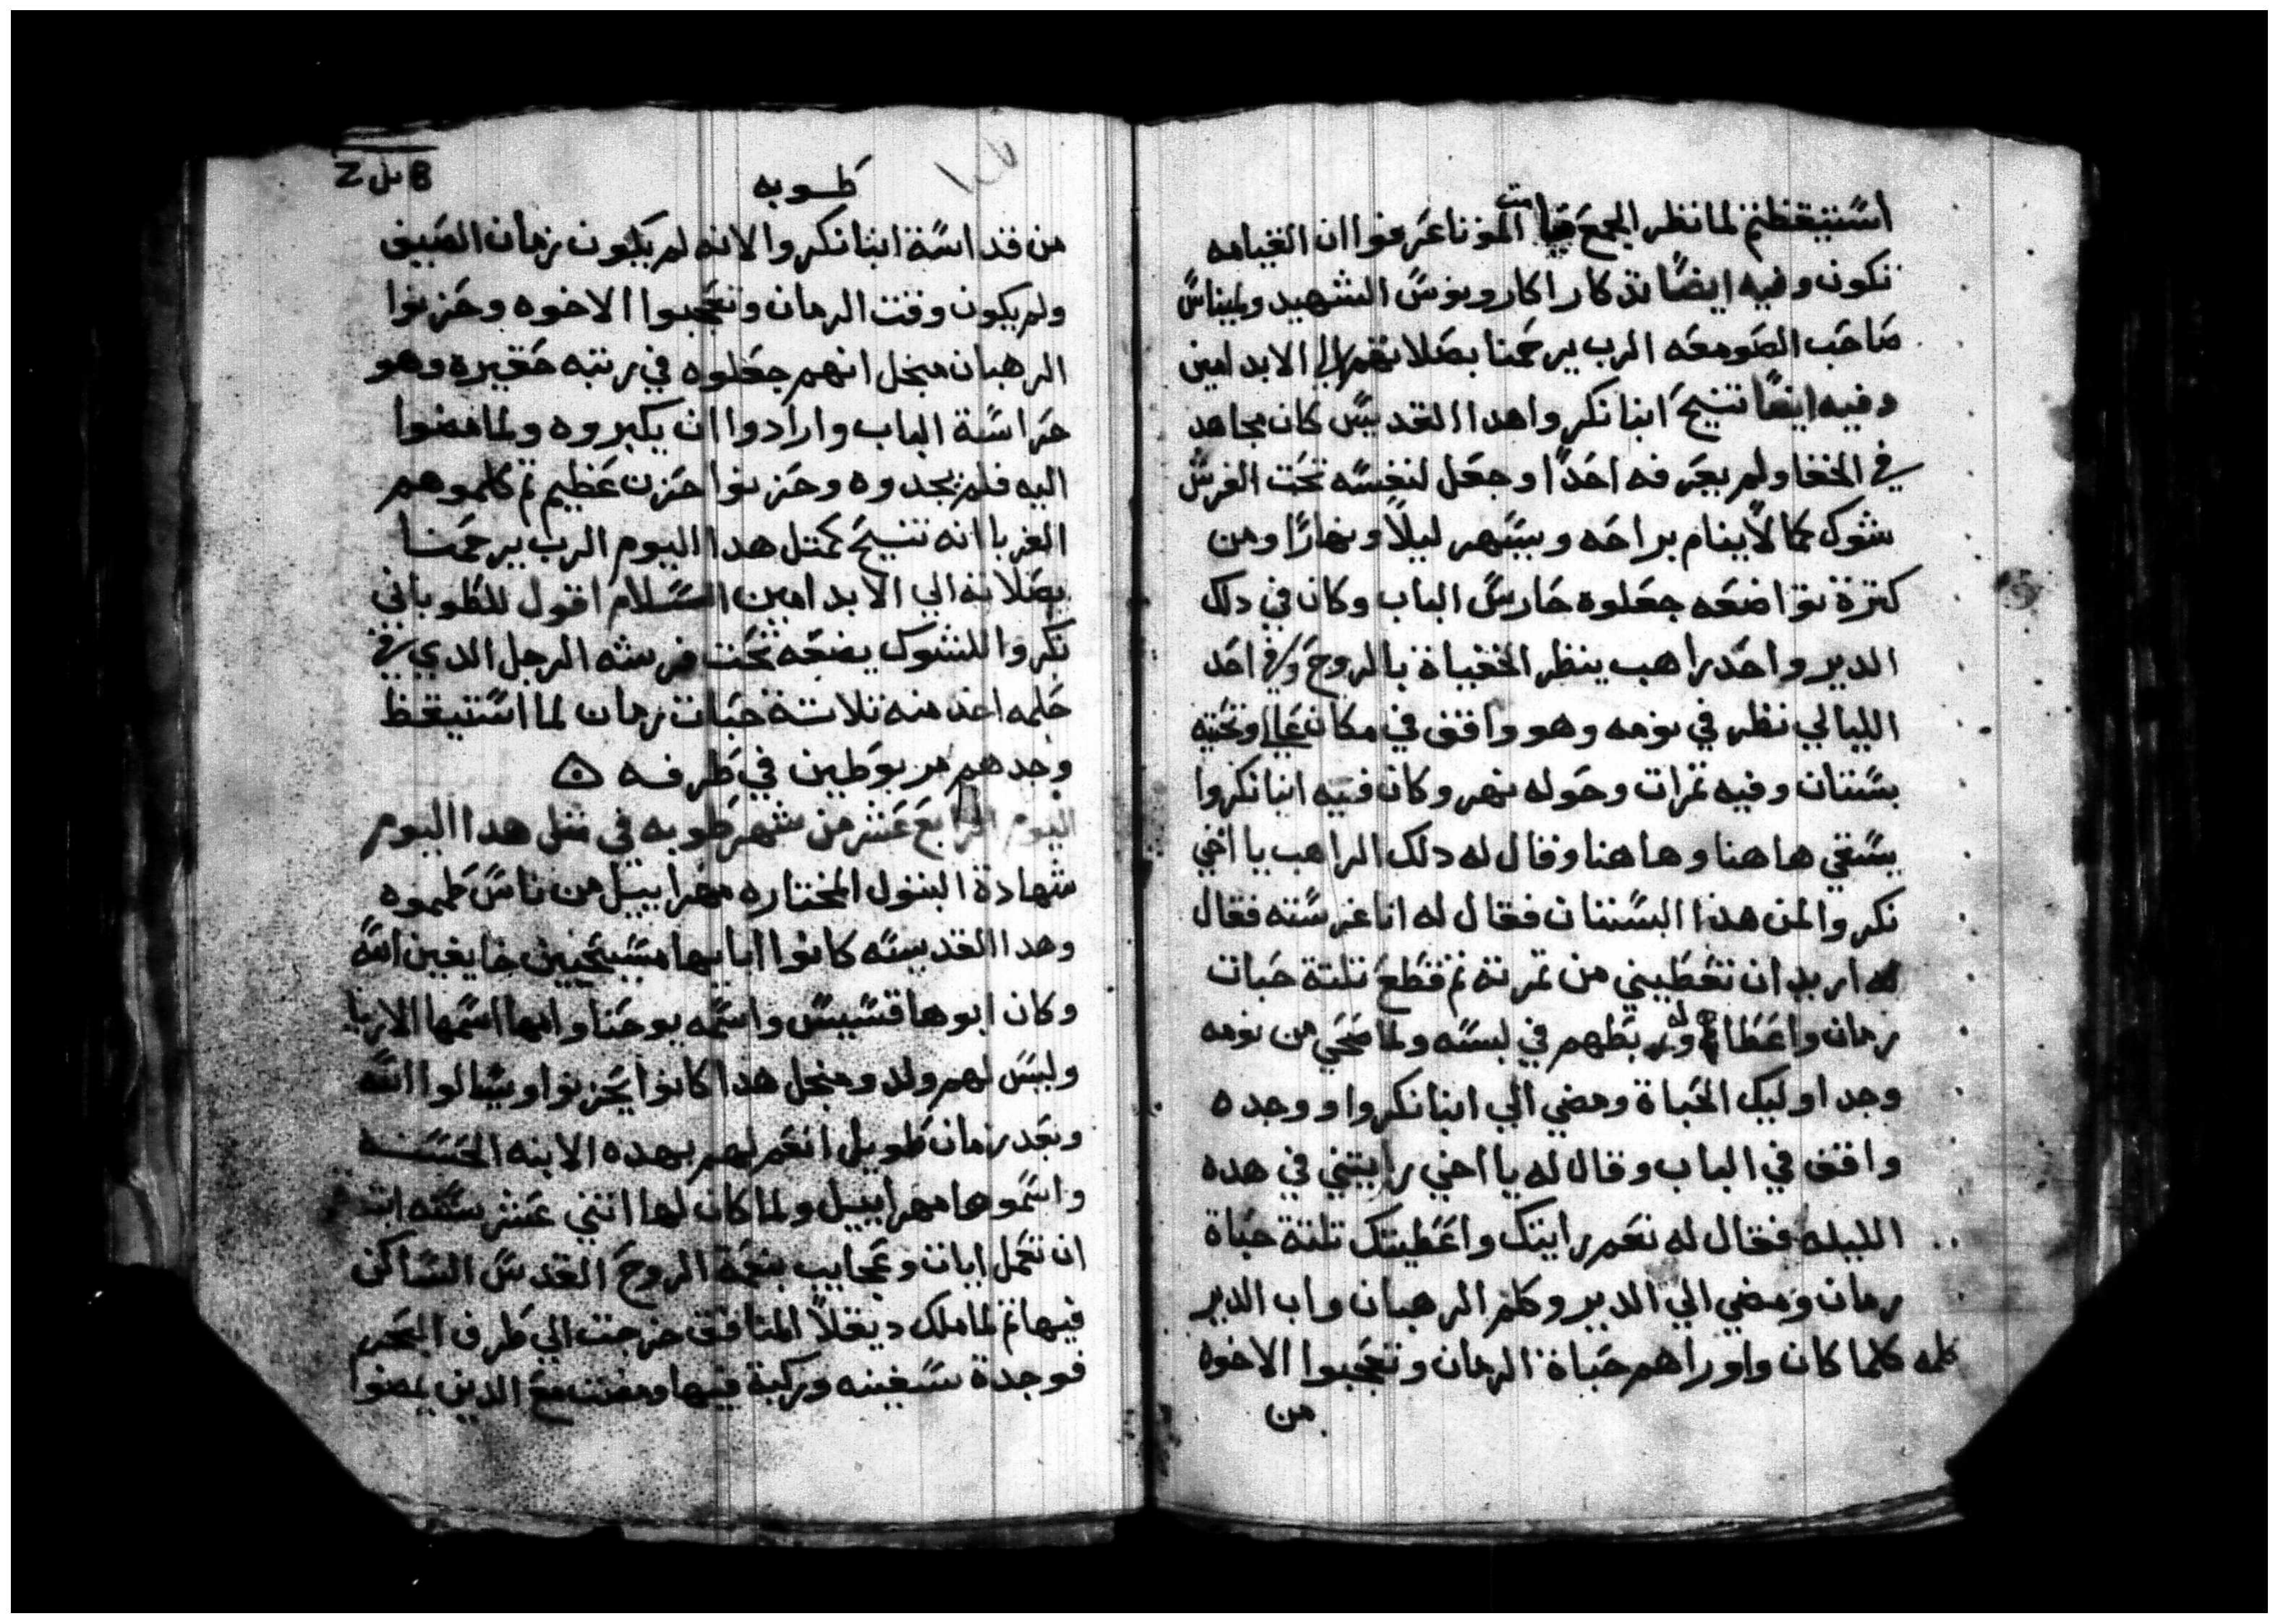 استيقظتم لما نظر الجمع قيامت الموتا عرفوا ان القيامه
تكون وفيه ايضًا تدكار اكارويوس الشهيد ولميناس
صاحب الصومعه الرب يرحمنا بصلاتهم الي الابد امين
وفيه ايضًا تنيح ابنا نكروا هدا القديس كان مجاهد
في الخفا ولم يعرفه احدًا وجعل لنفسه تحت الفرش
شوك كما لا ينام براحه ويسهر ليلاً ونهارًا ومن
كترة تواضعه جعلوه حارس الباب وكان في دلك
الدير واحد راهب ينظر الخفياة بالروح وفي احد
الليالي نظر في نومه وهو واقف في مكان عالي وتحته
بستان وفيه تمرات وحوله نهر وكان فيه ابنا نكروا
يسقي هاهنا وهاهنا وقال له دلك الراهب يا اخي
نكروا لمن هدا البستان فقال له انا غرسته فقال
له اريد ان تعطيني من تمرته تم قطع تلتة حبات
رمان واعطاه له وربطهم في لبسه ولما صحي من نومه
وجد اوليك الحباة ومضي الي ابنا نكروا ووجده
واقف في الباب وقال له يا اخي رايتني في هده
الليله فقال له نعم رايتك واعطيتك تلتة حباة
رمان ومضي الي الدير وكلم الرهبان واب الدير
كلمه كلما كان واوراهم حباة الرمان وتعجبوا الاخوه
من
8 ىل Z
طوبه
من قداسة ابنا نكروا لانه لم يكون زمان الصيف
ولم يكون وقت الرمان وتعجبوا الاخوه وحزنوا
الرهبان منجل انهم جعلوه في رتبه حقيره وهو
حراسة الباب وارادوا ان يكبروه ولما مضوا
اليه فلم يجدوه وحزنوا حزن عظيم تم كلموهم
الغربا انه تنيح كمتل هدا اليوم الرب يرحمنا
بصلاته الي الابد امين السلام اقول للطوباني
نكروا للشوك يضعه تحت فرشه الرجل الدي في
حلمه اخد منه تلاتة حبات رمان لما استيقظ
وجدهم مربوطين في طرفه
اليوم الرابع عشر من شهر طوبه في متل هدا اليوم
شهادة البتول المختاره مهراييل من ناس طموه
وهدا القديسه كانوا ابايها مسيحيين خايفين الله
وكان ابوها قسيس واسمه يوحنا وامها اسمها الاريا
وليس لهم ولد ومنجل هدا كانوا يحزنوا ويسالوا الله
وبعد زمان طويل انعم لهم بهده الابنه الحسنه
واسموها مهراييل ولما كان لها اتني عشر سنه ابتدت
ان تعمل ايات وعجايب بنعمة الروح القدس الساكن
فيها تم لما ملك ديقلا المنافق خرجت الي طرف البحر
فوجدة سفينه وركبة فيها ومضت مع الدين يمضوا